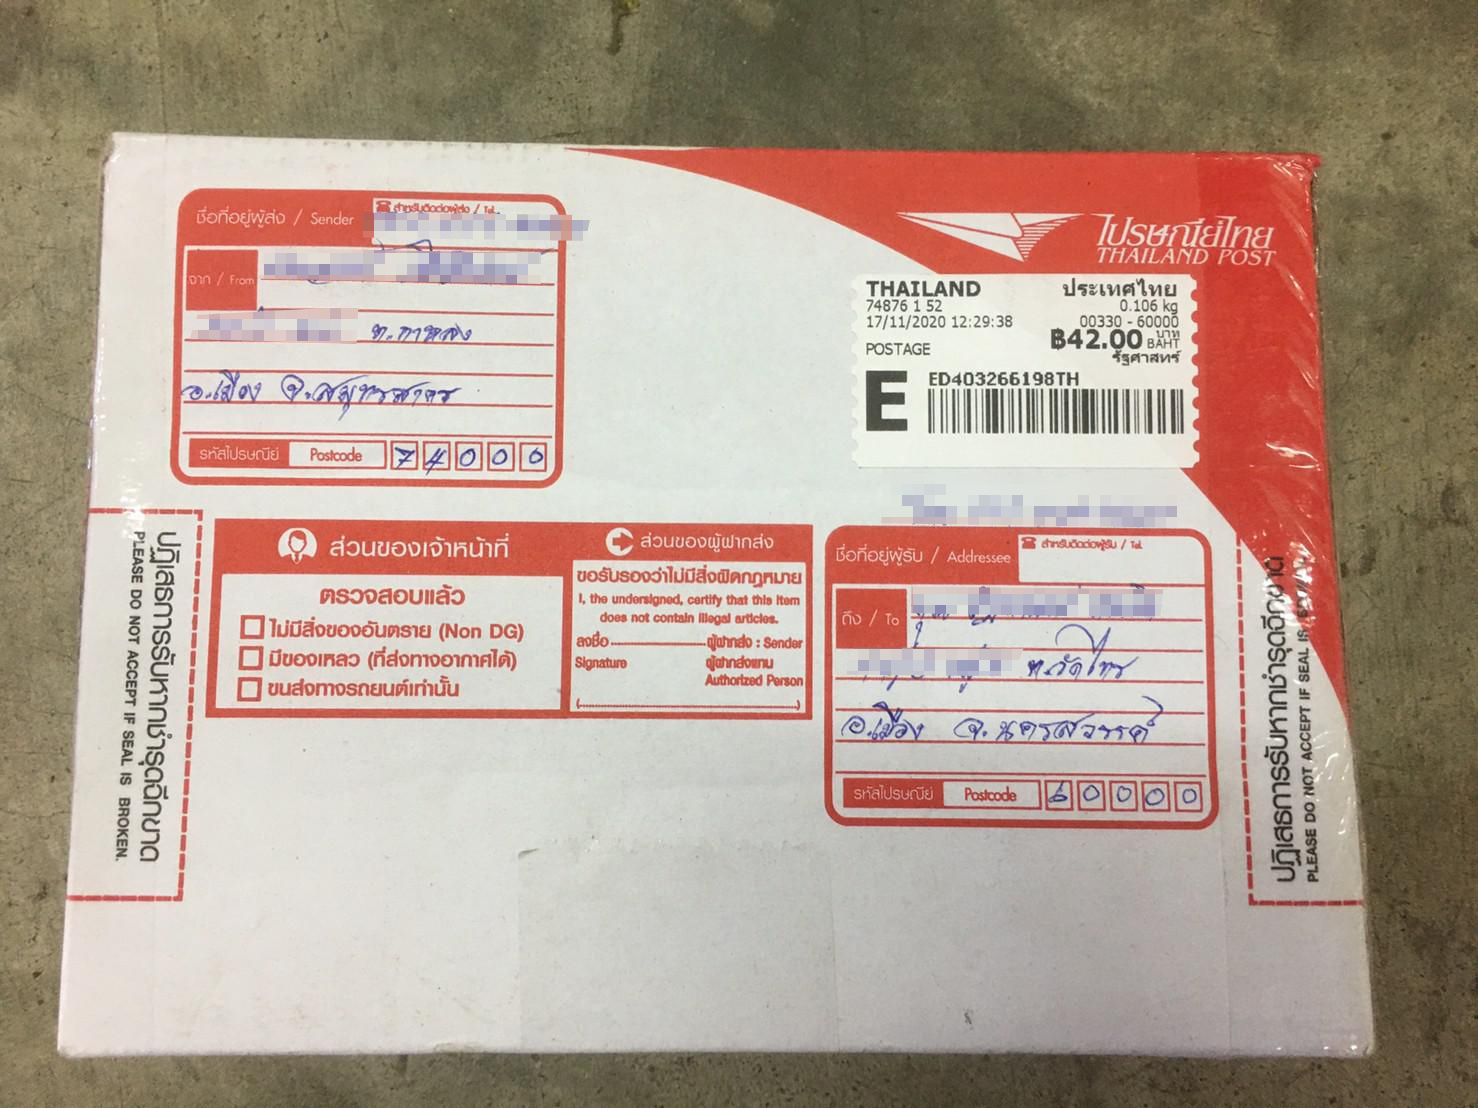 ชื่อที่อยู่ผู้ส่ง / Sender
สำหรับติดต่อผู้ส่ง / Tel.
จาก / From
ต.กาหลง
อ.เมือง จ.สมุทรสาคร
รหัสไปรษณีย์ Postcode 74000
ไปรษณีย์ไทย
THAILAND POST
THAILAND ประเทศไทย
74876 1 52 0.106 kg
17/11/2020 12:29:38 00330 - 60000
POSTAGE ฿42.00 บาท BAHT
รัฐศาสทร์
E ED403266198TH
ปฏิเสธการรับหากชำรุดฉีกขาด
PLEASE DO NOT ACCEPT IF SEAL IS BROKEN.
ส่วนของเจ้าหน้าที่
ตรวจสอบแล้ว
ไม่มีสิ่งของอันตราย (Non DG)
มีของเหลว (ที่ส่งทางอากาศได้)
ขนส่งทางรถยนต์เท่านั้น
ส่วนของผู้ฝากส่ง
ขอรับรองว่าไม่มีสิ่งผิดกฎหมาย
I, the undersigned, certify that this item
does not contain illegal articles.
ลงชื่อ ผู้ฝากส่ง : Sender
Signature ผู้ฝากส่งแทน
Authorized Person
(....................................................)
ชื่อที่อยู่ผู้รับ / Addressee
สำหรับติดต่อผู้รับ / Tel.
ถึง / To
ต.วัดไทร
อ.เมือง จ.นครสวรรค์
รหัสไปรษณีย์ Postcode 60000
ปฏิเสธการรับหากชำรุดฉีกขาด
PLEASE DO NOT ACCEPT IF SEAL IS